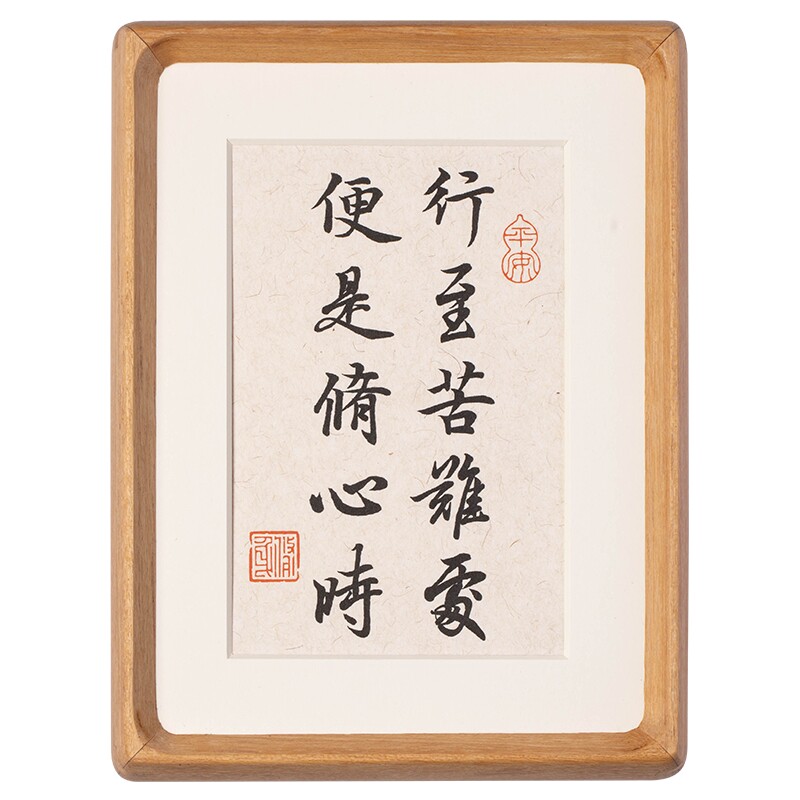 行至苦難處
便是脩心時
平安